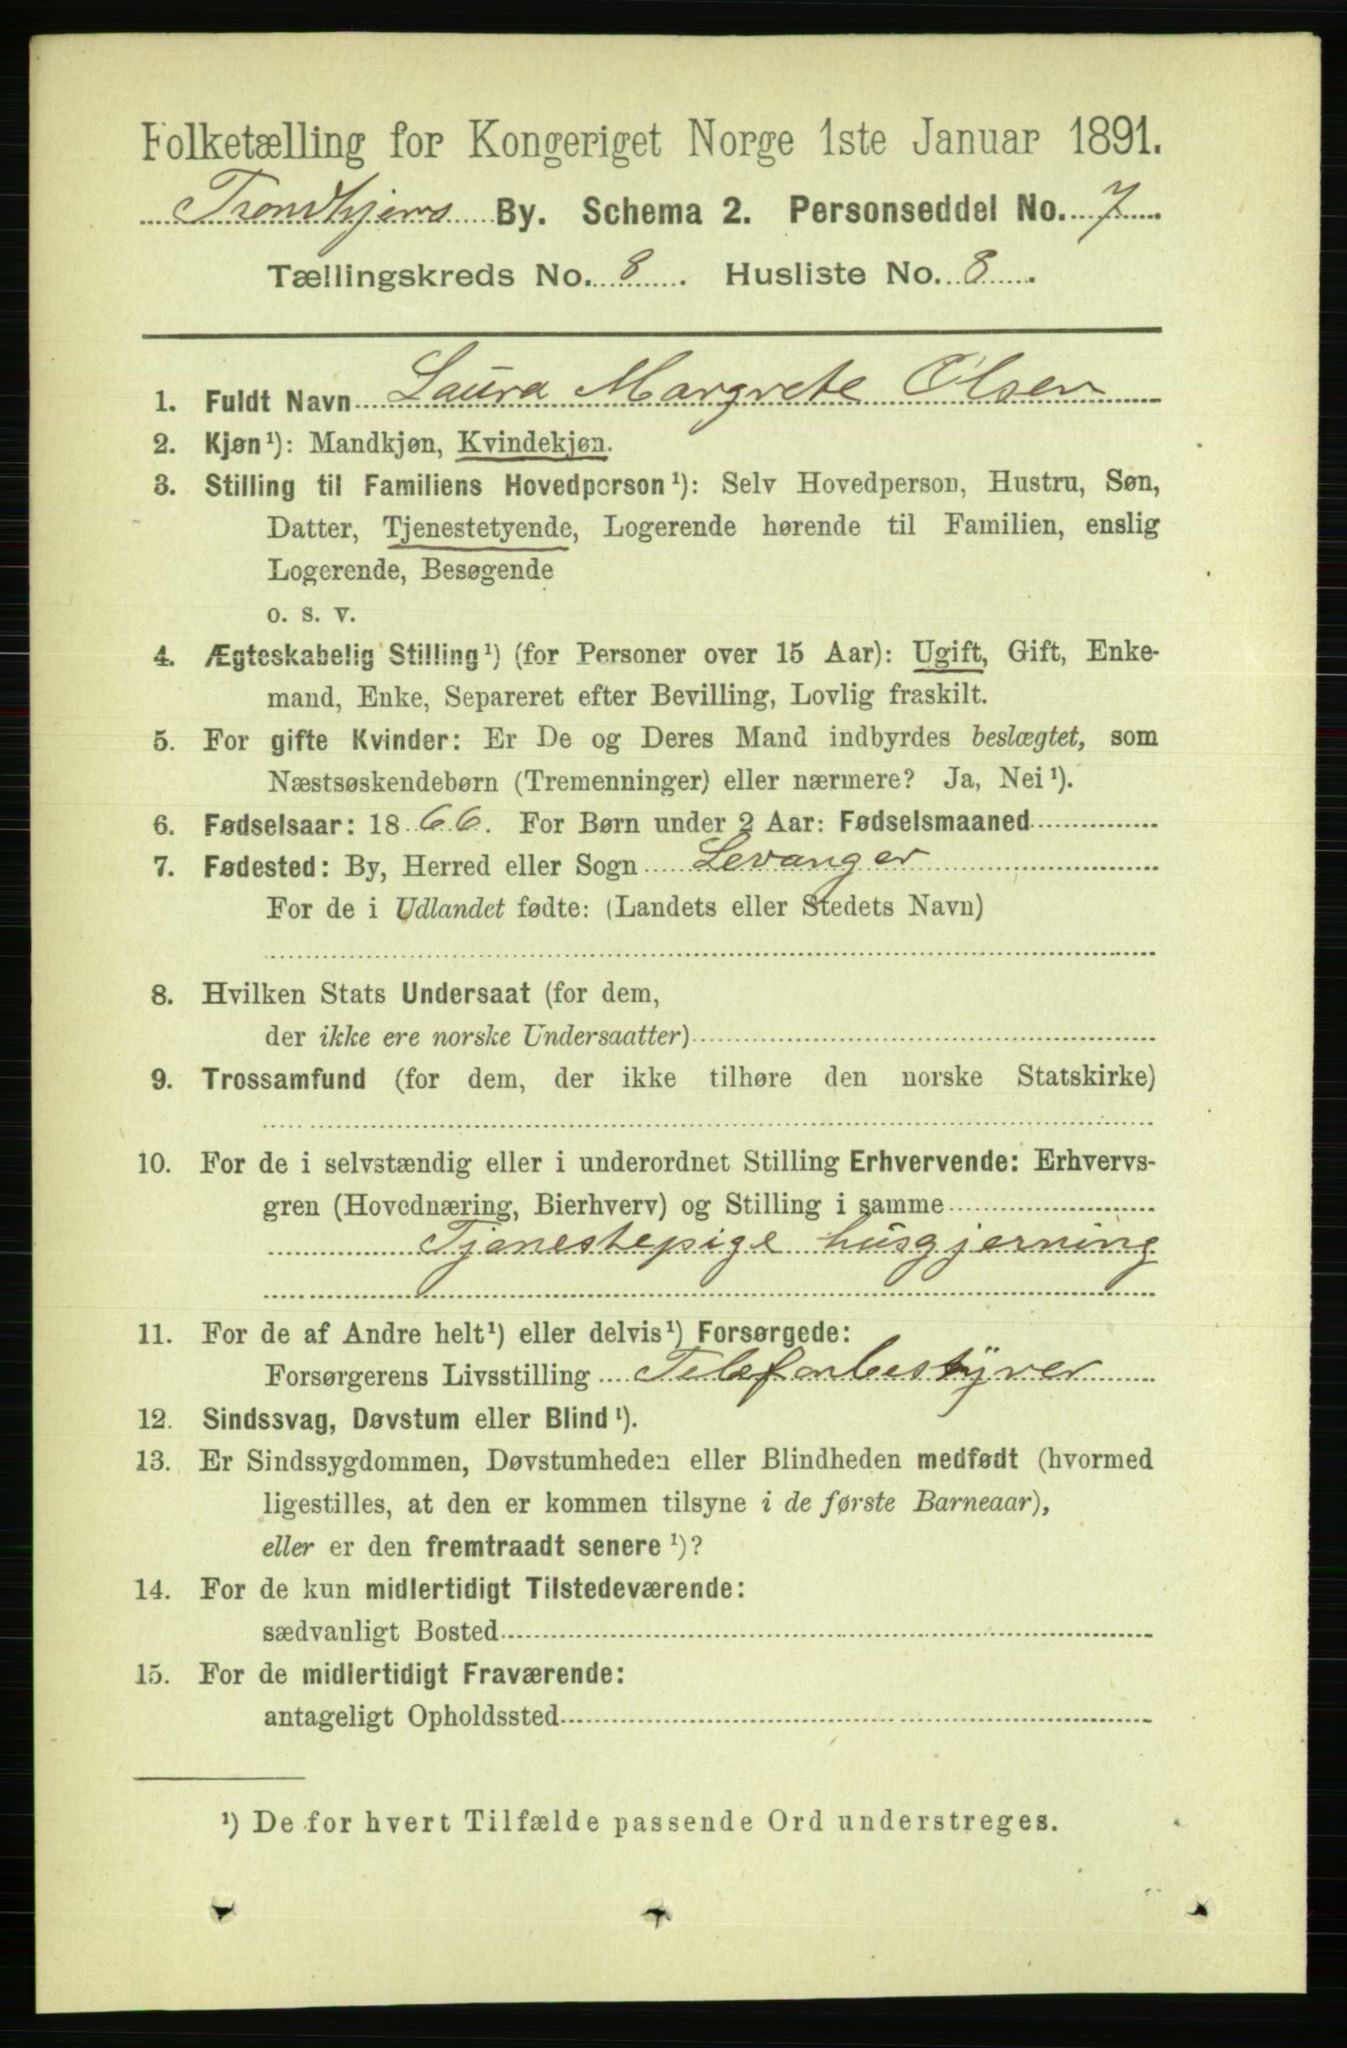 Folketælling for Kongeriget Norge 1ste Januar 1891.
Trondhjems By. Schema 2. Personseddel No. 7
Tællingskreds No. 8. Husliste No. 8.
1. Fuldt Navn Laura Margrete Olsen
2. Kjøn¹): Mandkjøn, Kvindekjøn.
3. Stilling til Familiens Hovedperson¹): Selv Hovedperson, Hustru, Søn,
Datter, Tjenestetyende, Logerende hørende til Familien, enslig
Logerende, Besøgende
o. s. v.
4. Ægteskabelig Stilling¹) (for Personer over 15 Aar): Ugift, Gift, Enke-
mand, Enke, Separeret efter Bevilling, Lovlig fraskilt.
5. For gifte Kvinder: Er De og Deres Mand indbyrdes beslægtet, som
Næstsøskendebørn (Tremenninger) eller nærmere? Ja, Nei¹).
6. Fødselsaar: 1866. For Børn under 2 Aar: Fødselsmaaned
7. Fødested: By, Herred eller Sogn Levanger
For de i Udlandet fødte: (Landets eller Stedets Navn)
8. Hvilken Stats Undersaat (for dem,
der ikke ere norske Undersaatter)
9. Trossamfund (for dem, der ikke tilhøre den norske Statskirke)
10. For de i selvstændig eller i underordnet Stilling Erhvervende: Erhvervs-
gren (Hovednæring, Bierhverv) og Stilling i samme
Tjenestepige husgjerning
11. For de af Andre helt¹) eller delvis¹) Forsørgede:
Forsørgerens Livsstilling Telefonbestyrer
12. Sindssvag, Døvstum eller Blind¹).
13. Er Sindssygdommen, Døvstumheden eller Blindheden medfødt (hvormed
ligestilles, at den er kommen tilsyne i de første Barneaar),
eller er den fremtraadt senere¹)?
14. For de kun midlertidigt Tilstedeværende:
sædvanligt Bosted
15. For de midlertidigt Fraværende:
antageligt Opholdssted
¹) De for hvert Tilfælde passende Ord understreges.